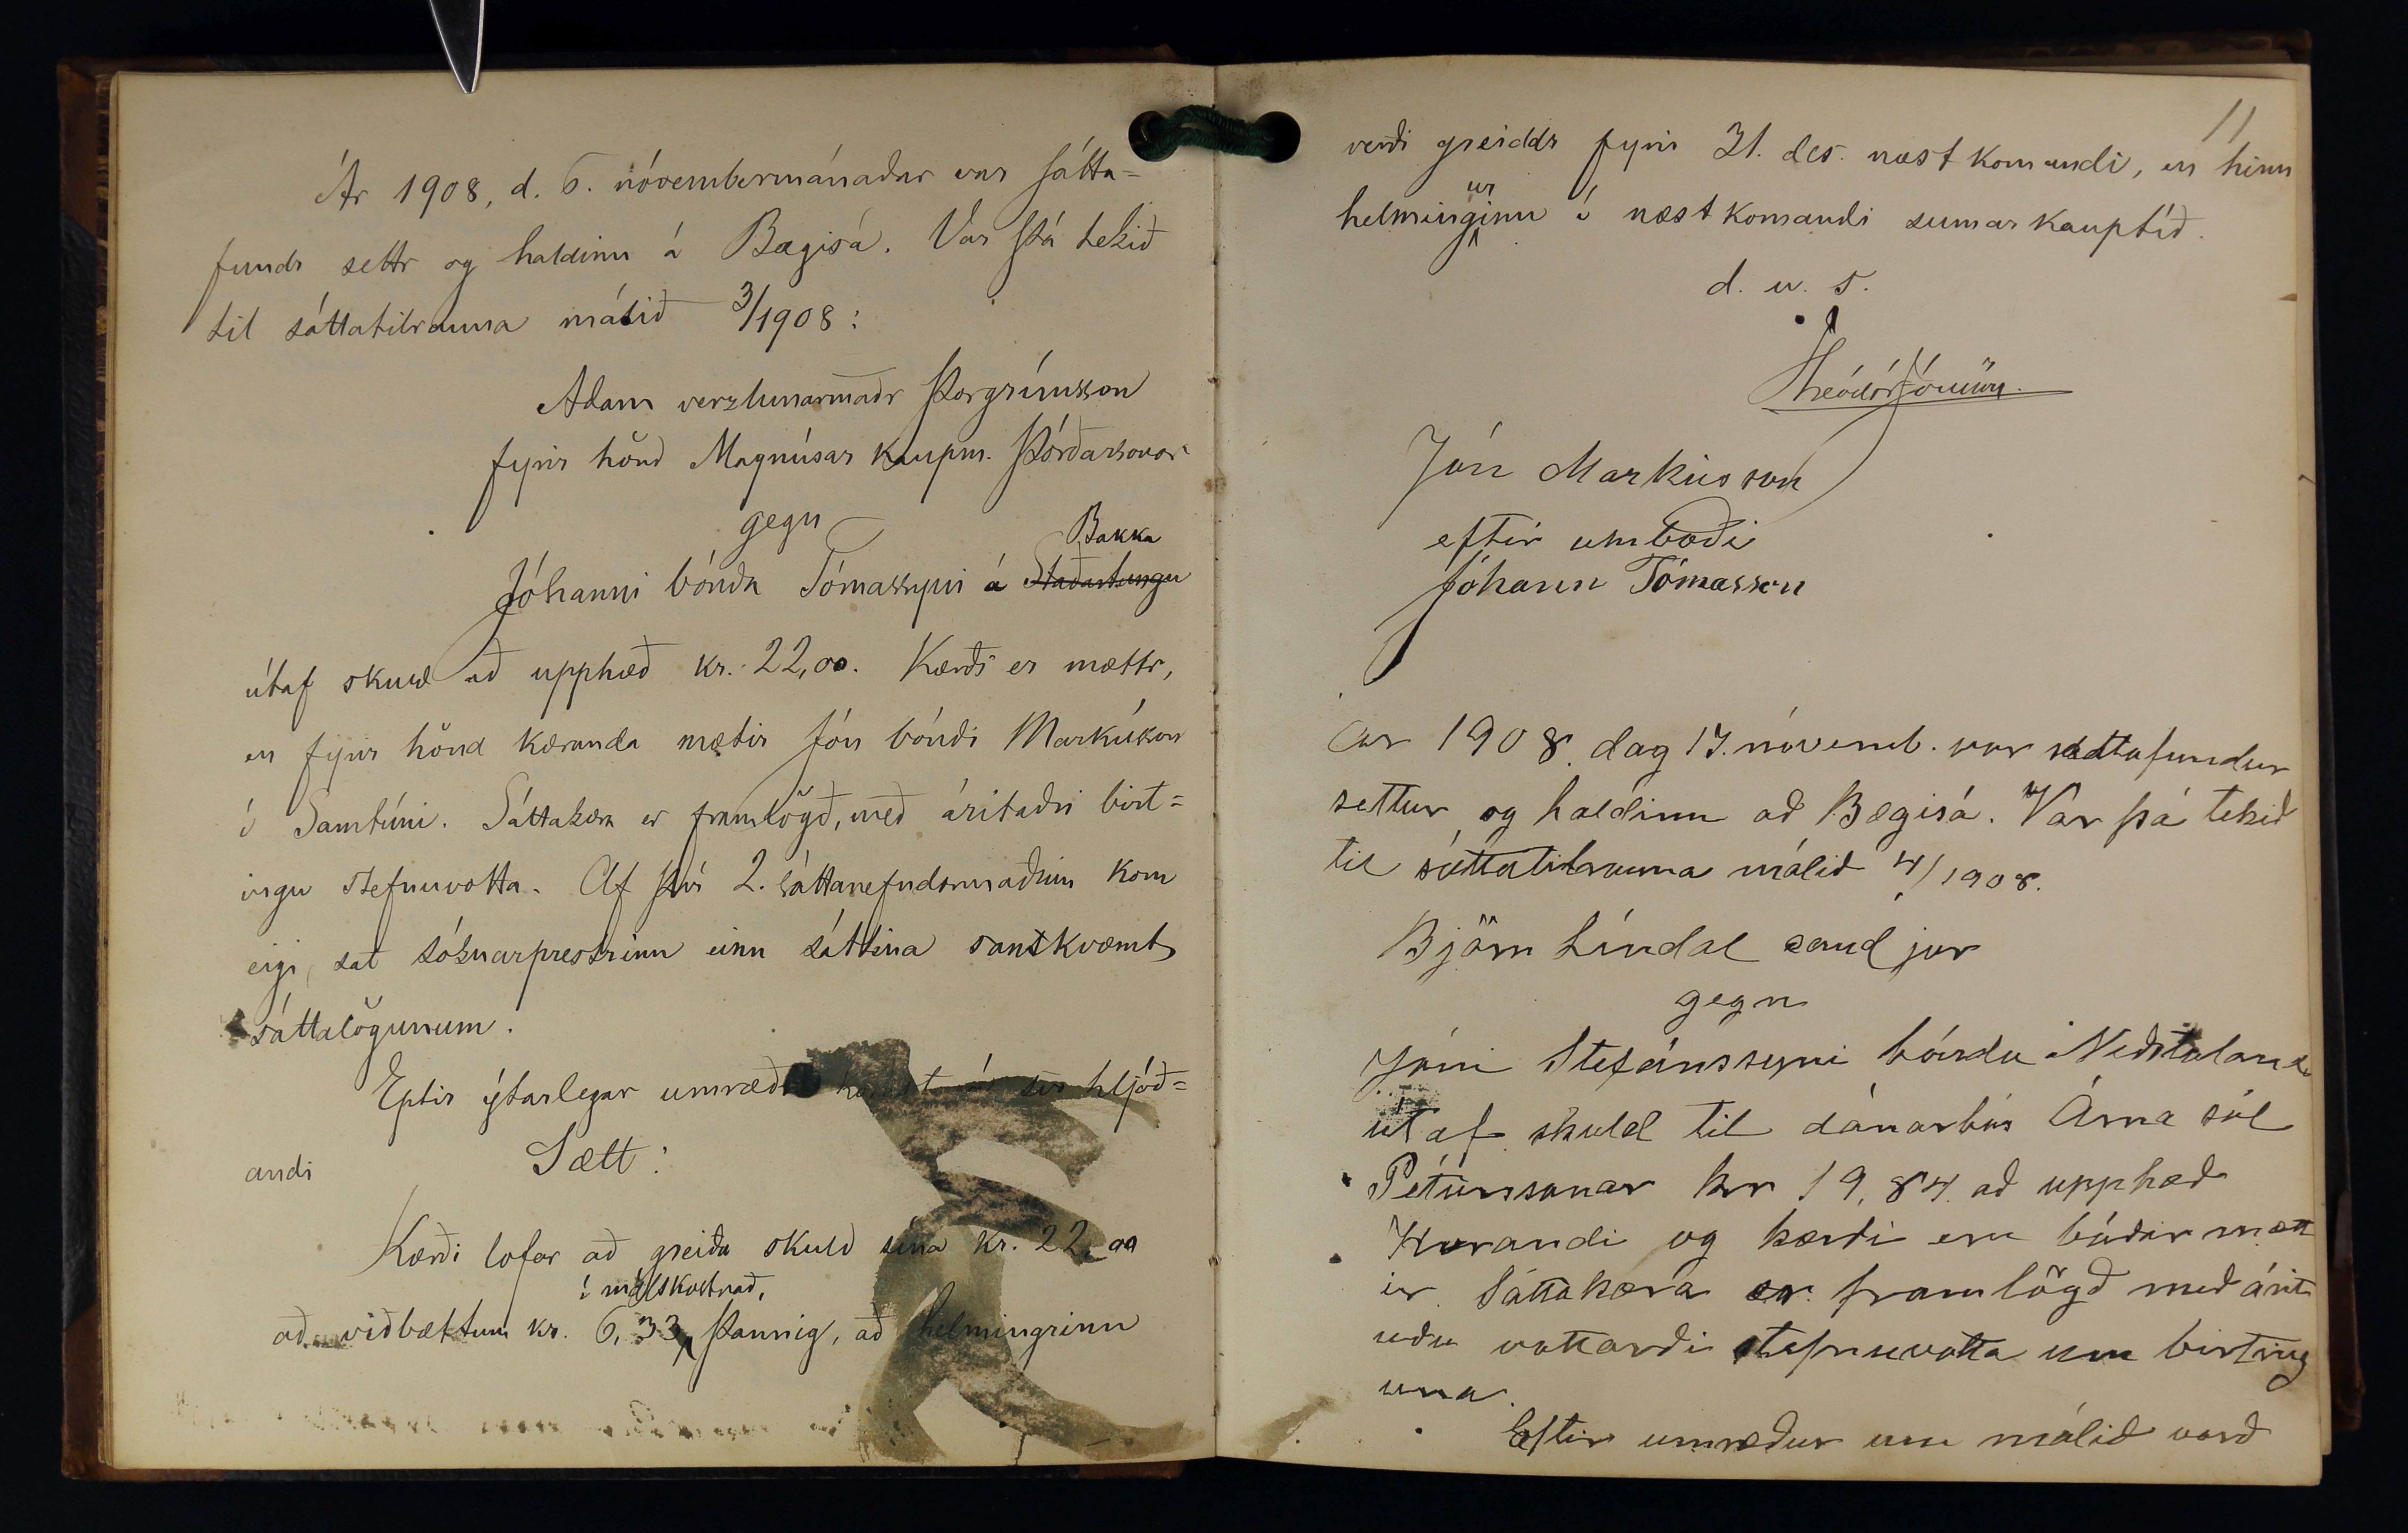 Ár 1908, d. 6. nóvembermánaðar var sátta=
fundr settr og haldinn á Bægisá. Var þá tekið
til sáttatilrauna málið 3/1908:
Adam verzlunarmaðr Þorgrímsson
fyrir hönd Magnúsar kaupm. Þórðarsonar
gegn
Bakka
Jóhanni bónda Tómassyni á Staðartungu
útaf skuld að upphæð kr. 22,00. Kærði er mættr,
en fyrir hönd kæranda mætir Jón bóndi Markússon
í Samtúni. Sáttakæra er framlögð, með áritaðri birt=
ingu stefnuvotta. Af því 2. sáttanefndarmaðrinn kom
eigi, sat sóknarprestrinn einn sáttina samkvæmt
sáttalögunum.
Eptir ýtarlegar umræður komst á sér hljóð=
andi Sætt:
Kærði lofar að greiða skuld sína kr. 22,00
í málskostnað,
að viðbættum kr. 6,33, þannig, að helmingrinn
11
verði greiddr fyrir 31. des. næstkomandi, en hinn
ur
helminginn í næstkomandi sumarkauptíð.
d. u. s.
Theódór Jónsson.
Jón Markússon
eftir umboði
Jóhann Tómasson
Ár 1908. dag 17. novemb. var sáttafundur
settur og haldinn að Bægisá. Var þá tekið
til sáttatilrauna málið 4/1908.
Björn Líndal cand jur
gegn
Jóni Stefánssyni bónda Neðstalandi
út af skuld til dánarbús Árna sál
Péturssonar kr 19,84. að upphæð
Kærandi og kærði eru báðir mætt
ir. Sáttakæra er framlögð með árit
uðu vottorði stefnuvotta um birting
una.
Eftir umræður um málið varð